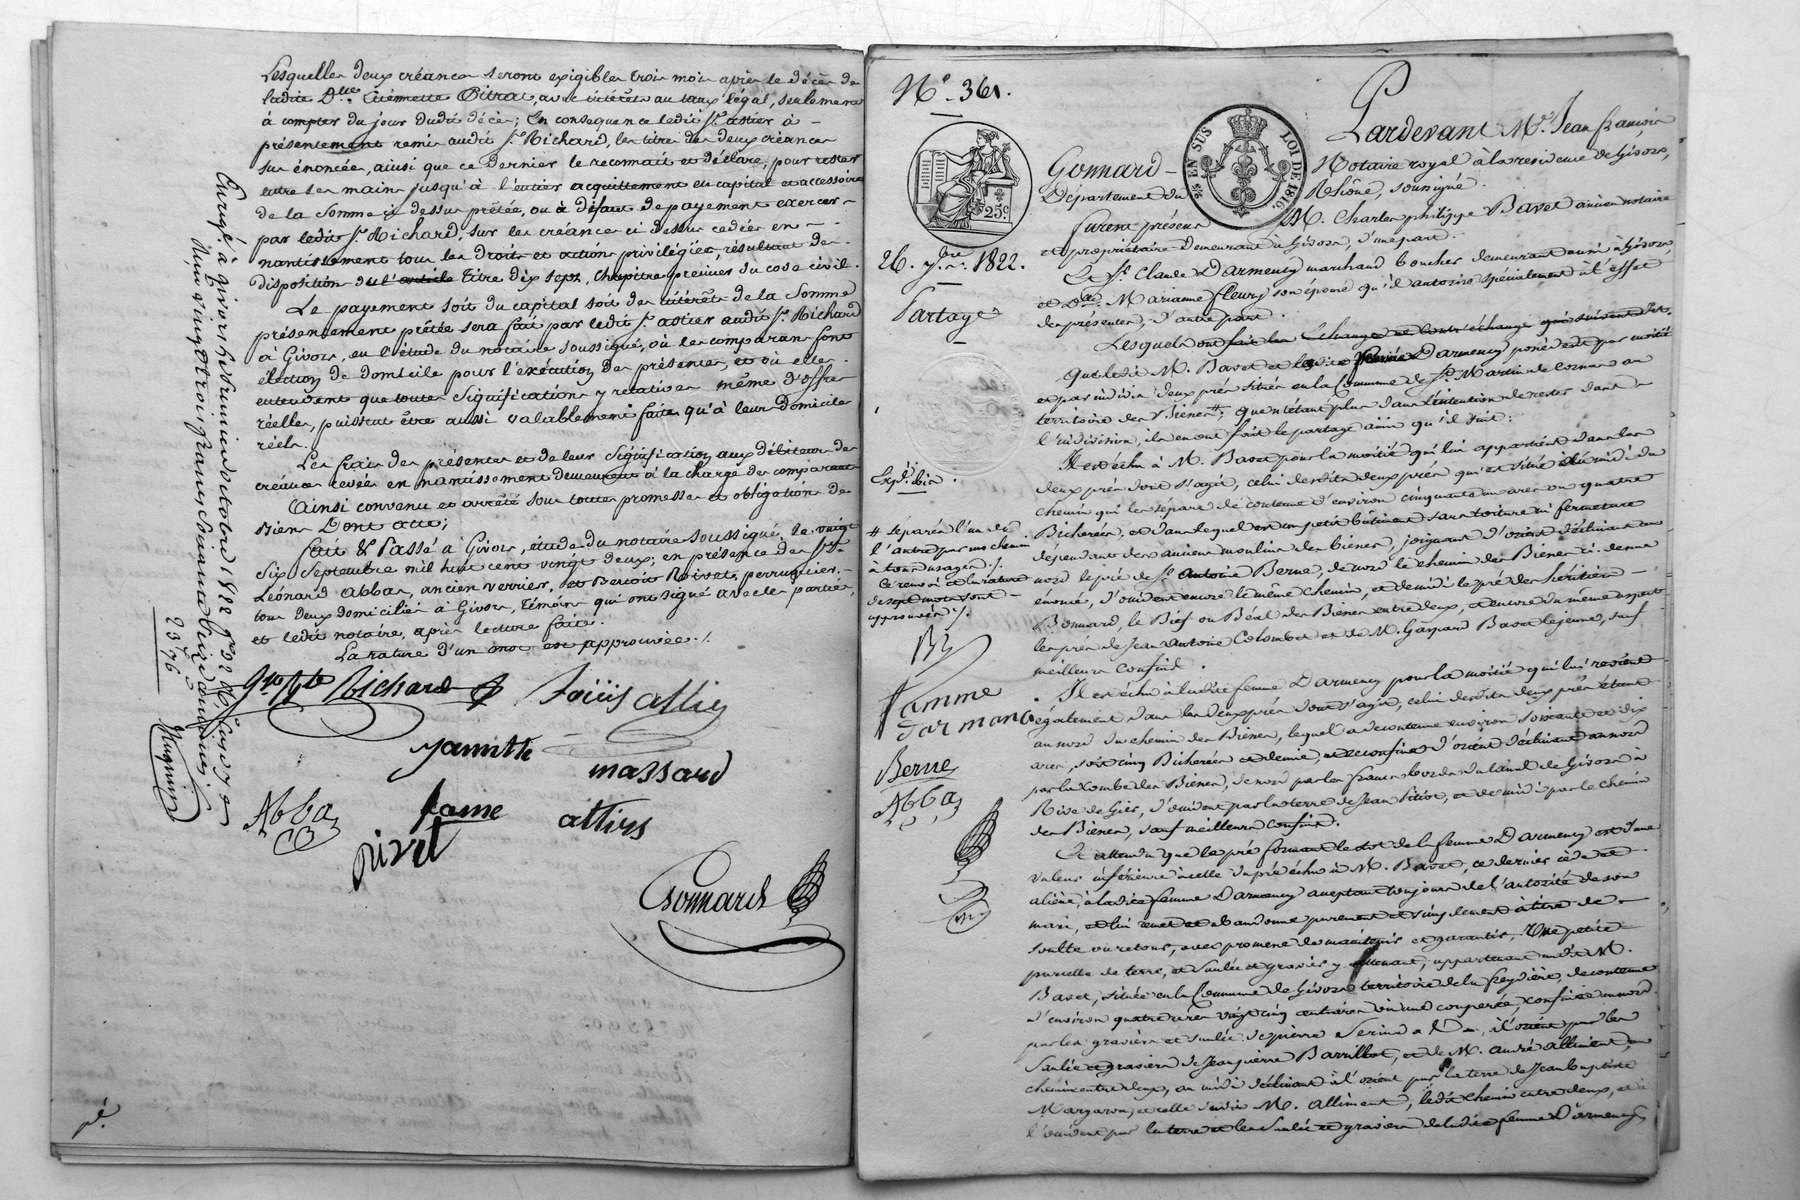 Lesquelles deux créances seront exigibles trois mois après le décès de
ladite Dlle. Etiennette Pitrat, avec intérêts au taux légal, seulement
à compter du jour dudit décès; En conséquence ledit Sr. astier à
présentement remis audit Sr. Richard, les titres des deux créances
sus énoncées, ainsi que ce dernier le reconnait et déclare, pour rester
entre ses mains jusqu'à l'entier acquittement en capital et accessoires
de la somme ci dessus prêtée, ou à défaut de payement exercer
par ledit Sr. Richard, sur les créances ci dessus cédées en
nantissement tous les Droits et actions privilégiées, résultant des
dispositions de l'article titre dix sept, chapitre premier du code civil.
Le payement soit du capital soit des intérêts de la Somme
présentement prêtée sera fait par ledit Sr. astier audit Sr. Richard
à Givors, en l'étude du notaire soussigné, où les comparans font
élection de domicile pour l'exécution des présentes, et où elles
entendent que toutes significations y relatives même d'offres
réelles, puissent être aussi valablement faites qu'à leurs domiciles
réels.
Les frais des présentes et de leur signification aux débiteurs des
créances cédées en nantissement demeurent à la charge des comparants
Ainsi convenu et arrêté sous toutes promesses et obligations de
biens Dont acte;
fait & Passé à Givors, étude du notaire soussigné, le vingt
six Septembre mil huit cent vingt deux; en présence des Srs.
Léonard Abbas, ancien verrier, et Benoit Rivet, perruquier,
tous deux domiciliés à Givors, témoins qui ont signé avec les parties,
et ledit notaire, après lecture faite.
La rature d'un mot est approuvée ./.
Richard
Louis astier
massard
fame
attiers
Abbas
rivet
Gonnard
23,76
Huguin
N°. 361.
25 EN SUS
LOI DE 1816.
25c
26. 7bre. 1822.
Partage
Pardevant Me. Jean François
Gonnard - Notaire royal à la résidence de Givors,
Département du Rhône, soussigné.
furent présens M. Charles philippe Bavet ancien notaire
et propriétaire demeurant à Givors, d'une part.
Et Sr. Claude Darmency marchand boucher demeurant aussi à Givors
et Dae. Marianne fleury son épouse qu'il autorise spécialement à l'effet
des présentes, d'autre part.
Lesquels ont fait les échanges et contr'échange qui suivent
Que ledit M. Bavet et ladite femme Darmency possèdent par moitié
et par indivis deux prés situés en la Commune de St. Martin de Cornas au
territoire des Biénes #; que n'étant plus dans l'intention de rester dans
l'indivision, ils en ont fait le partage ainsi qu'il suit:
Il est échu à M. Bavet pour la moitié qui lui appartient dans les
deux prés dont s'agit, celui desdits deux prés qui est situé au midi du
chemin qui les sépare de contenue d'environ cinquante un ares ou quatre
Bicherées, et dans lequel est un petit bâtiment sans toiture ni fermeture
dépendant des anciens moulins des biénes, joignant d'orient déclinant au
nord le pré de Sr. Antoine Berne, de nord le chemin des Biénes ci-dessus
énoncé, d'occident encore le même chemin, et de midi le pré des héritiers
Bonnard, le Bief ou Béal des Biénes entre deux, et encore du même aspect
les prés de Jean Antoine Colombet et de M. Gaspard Bavet le jeune, sauf
meilleurs confins.
Il est échu à ladite femme Darmency pour la moitié qui lui revient
également dans les deux prés dont s'agit, celui desdits deux prés étant
au nord du chemin des Biénes, lequel a de contenue environ soixante et dix
ares, soit cinq Bicherées et demie, et se confine d'orient déclinant au nord
par la Combe des Biénes, de nord par les francs bords du canal de Givors à
Rive de Gier, d'occident par la terre de Jean Pitiot, et de midi par le chemin
des Biénes, sauf meilleurs confins.
Et attendu que le pré formant le lot de la femme Darmency est d'une
valeur inférieure à celle du pré échu à M. Bavet, ce dernier cède et
aliène, à ladite femme Darmency acceptant toujours de l'autorité de son
mari, et lui remet et abandonne purement et simplement à titre de
soulte ou retour, avec promesse de maintenir et garantir, Une petite
parcelle de terre, et saulée et graviers y attenant, appartenant audit M.
Bavet, située en la Commune de Givors territoire de la freydière, de contenue
d'environ quatre ares vingt cinq centiares ou une couperée, confinée au nord
par les graviers et saulée de pierre d'orient par les
Saulée et graviers de Jean pierre Barrillot, et de M. andré alliment, un
chemin entre deux, au midi déclinant à l'orient par la terre de Jean baptiste
Margaron, et celle dudit M. alliment, ledit chemin entre deux, et à
l'occident par la terre et les saulée et graviers de ladite femme Darmency
Expé. bis.
# séparés l'un de
l'autre par un chemin
à tous usages ./.
Ce renvoi et la rature
de sept mots sont
approuvés ./.
famme
Darmanci
Berne
Abbas